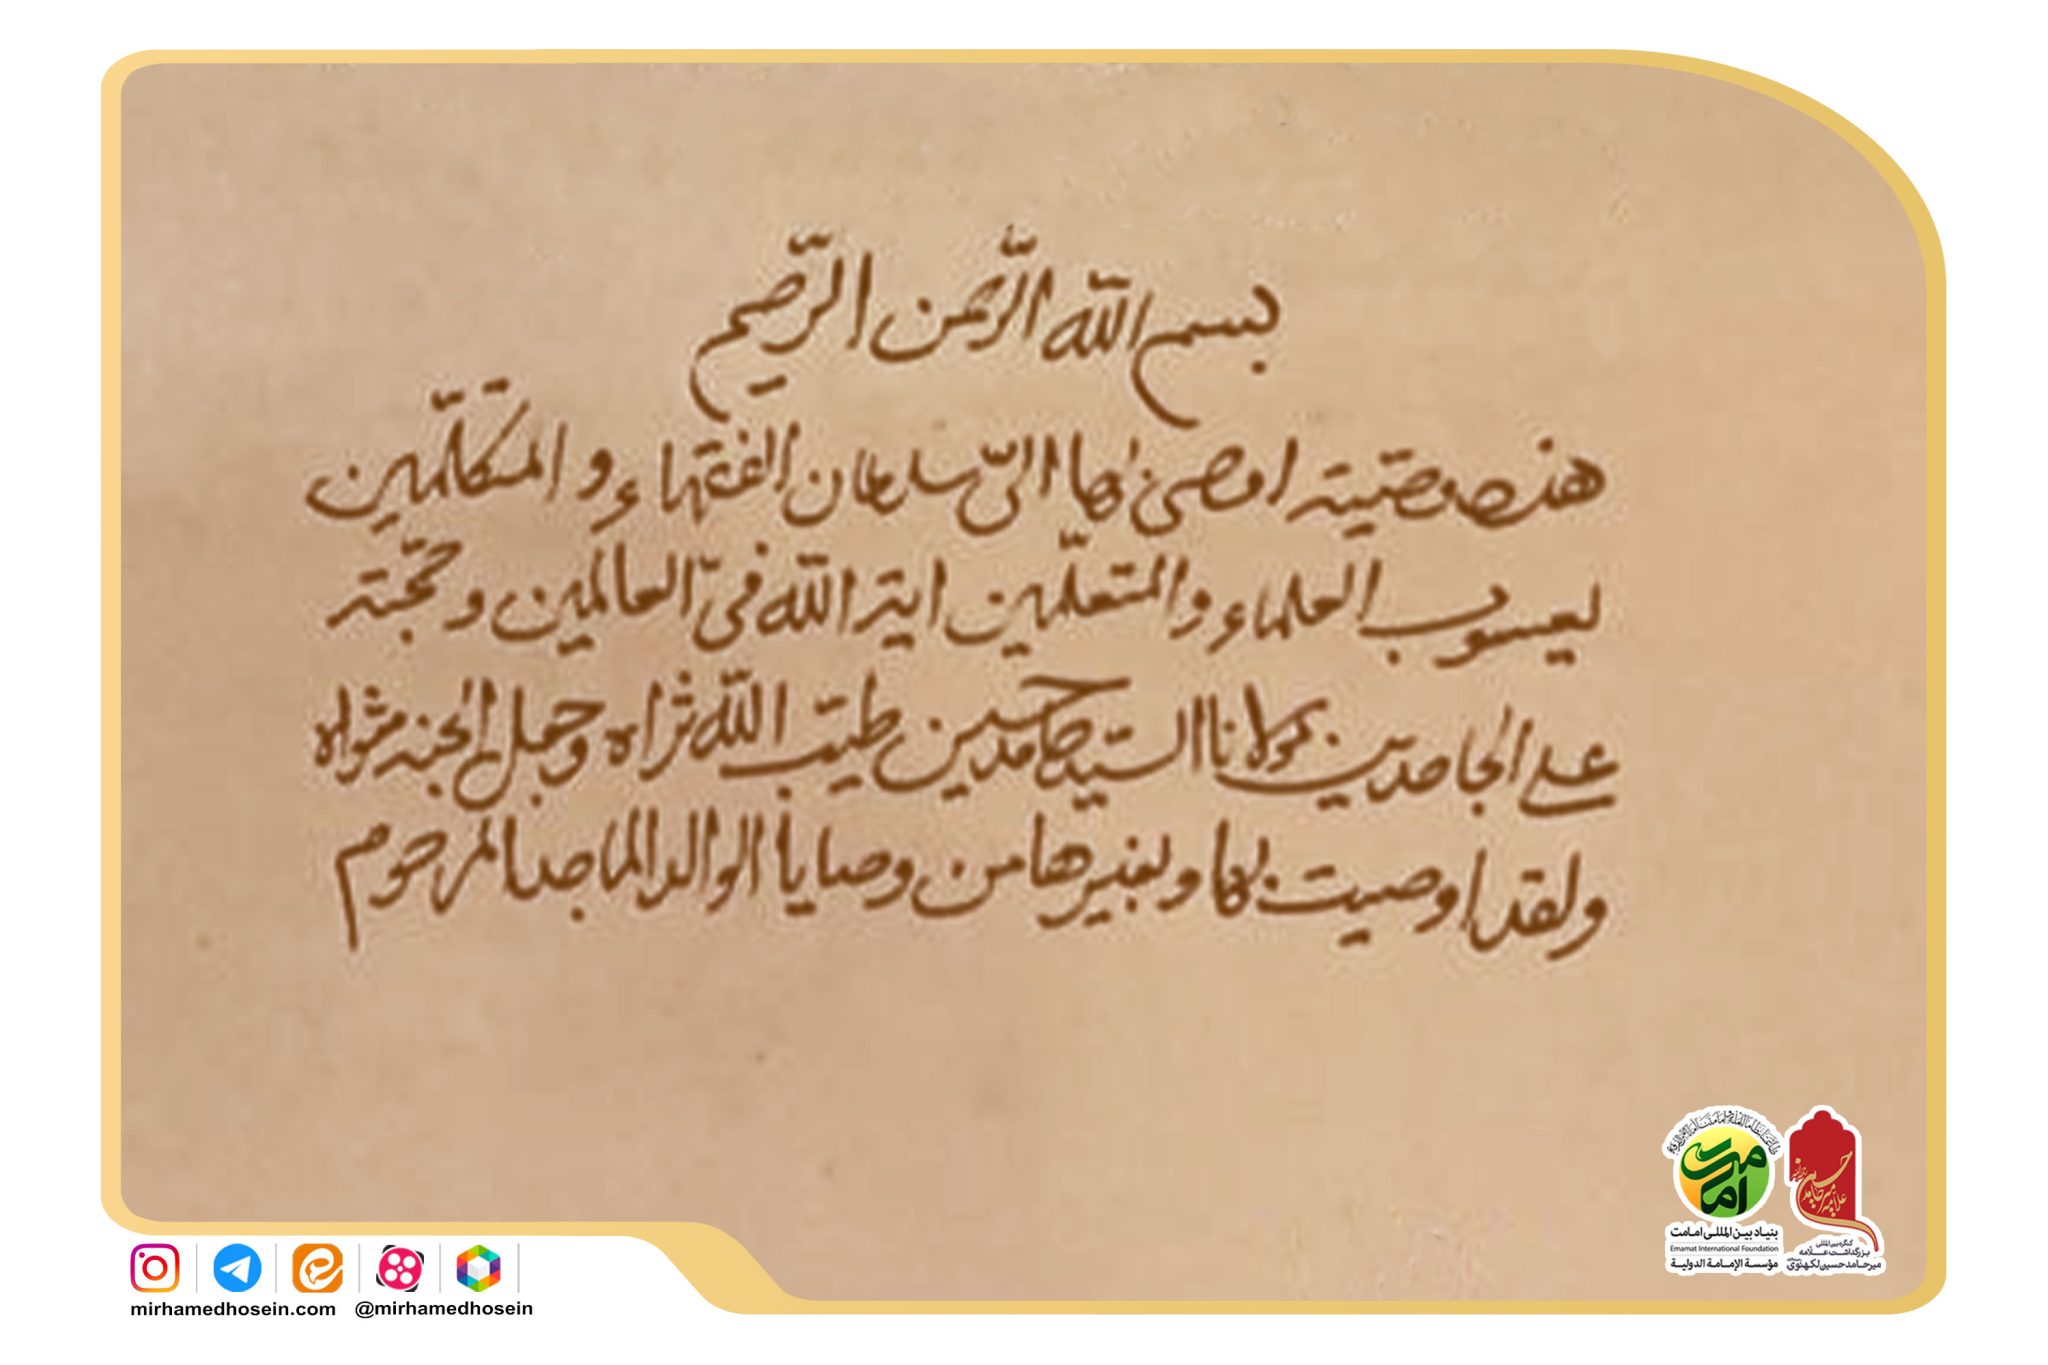 بسم الله الرّحمن الرّحيم
هذه وصيّة اوصىٰ بها الىّ سلطان الفقهاء و المتكلّمين
يعسوب العلماء و المتعلّمين اية الله فىّ العالمين و حجّته
على الجاحدين مولانا السيّد حامد حسين طيّب الله ثراه وجعل الجنة مثواه
ولقد اوصيت بها و بغيرها من وصايا الوالد الماجد المرحوم
امامت
بنیاد بین المللی امامت
Emamat International Foundation
مؤسسة الإمامة الدولية
علامه میر حامد حسین
کنگره بین المللی
بزرگداشت علامه
میر حامد حسین لکهنوی
mirhamedhosein.com @mirhamedhosein